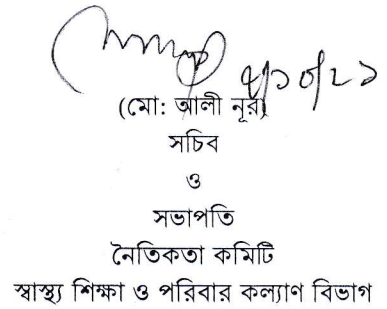 ৭/১০/২১
(মো: আলী নূর)
সচিব
ও
সভাপতি
নৈতিকতা কমিটি
স্বাস্থ্য শিক্ষা ও পরিবার কল্যাণ বিভাগ